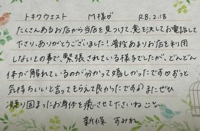 トキワクエスト M様が R8.2.18
たくさんあるお店から当店を見つけて意を決してお電話して
下さり、ありがとうございました! 普段あまりお店を利用
しないとの事で、緊張されている様子でしたが、どんどん
体が解れているのが分かって嬉しかったですがおっと
気持ちいいと言ってもらえて良かったです♪またぜひ
凝り固まったお身体を癒させて下さいね
新小岩 すみれ